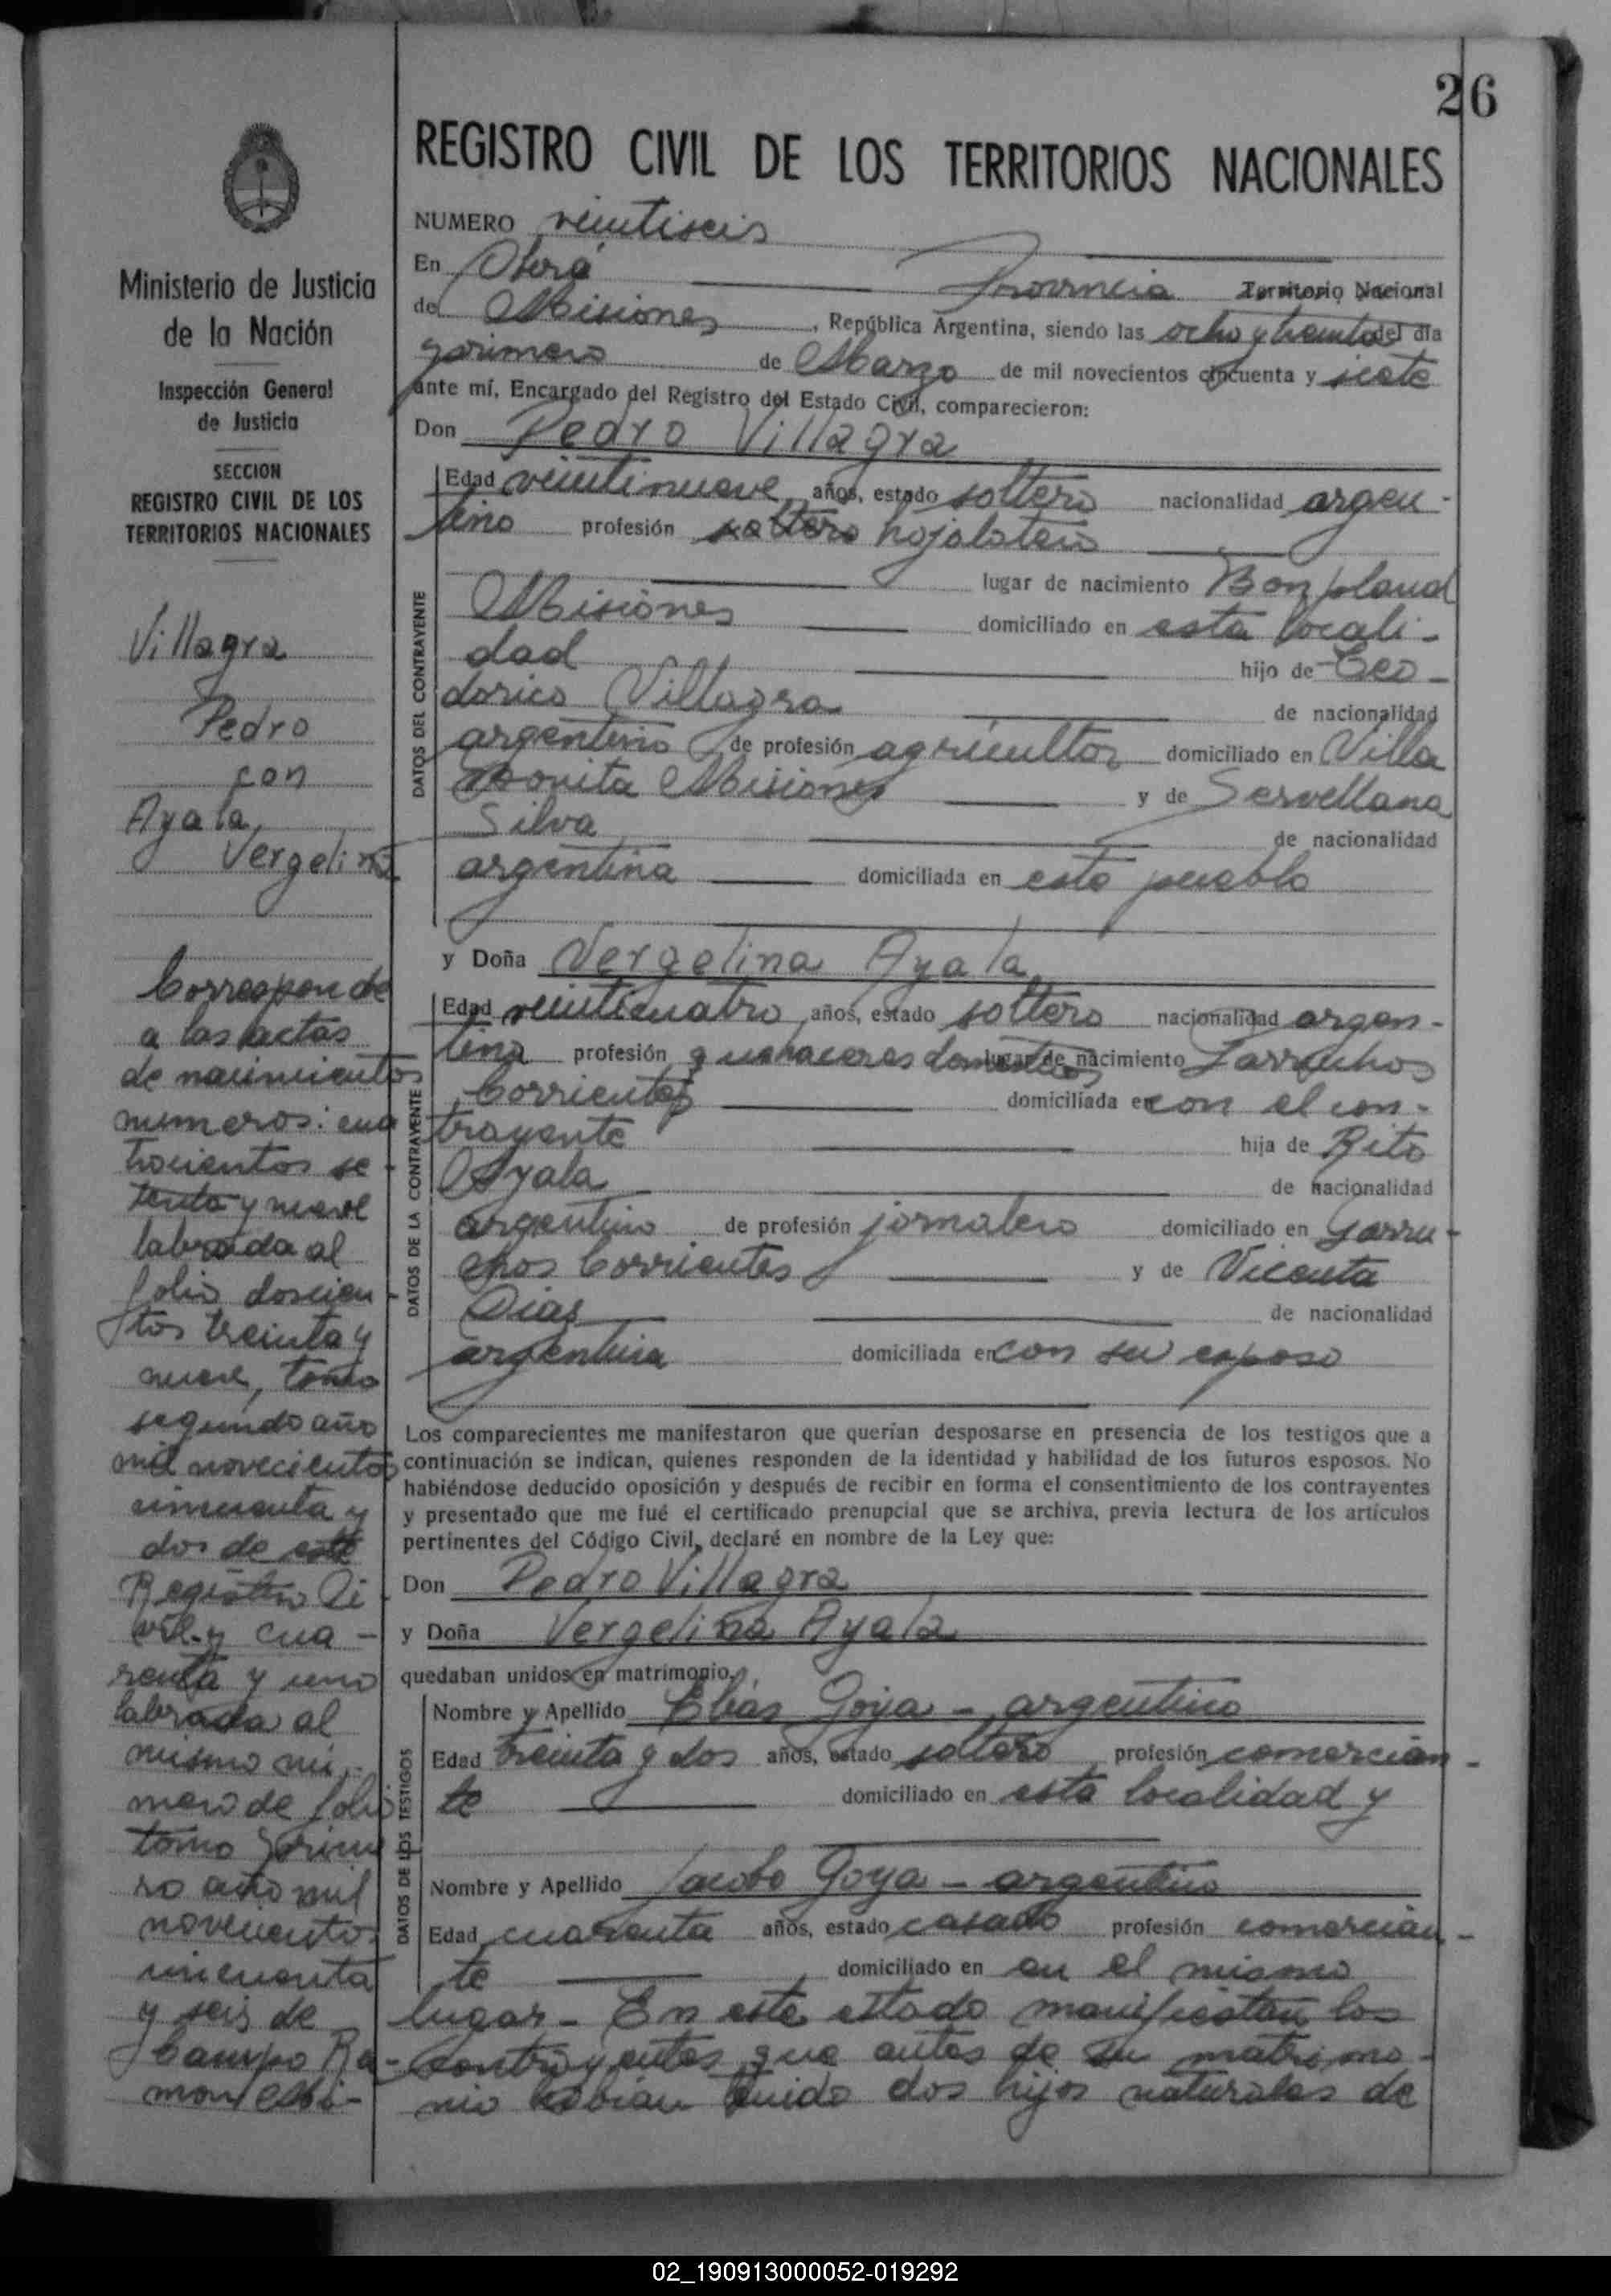 26
REGISTRO CIVIL DE LOS TERRITORIOS NACIONALES
Ministerio de Justicia
de la Nación
Inspección General
de Justicia
SECCION
REGISTRO CIVIL DE LOS
TERRITORIOS NACIONALES
Villagra
Pedro
con
Ayala,
Vergelina
Corresponde
a las actas
de nacimientos
numeros: cua
trocientos se-
tenta y nueve
labrada al
folio doscien
tos treinta y
nueve, tomo
segundo año
mil novecientos
cincuenta y
dos de este
Registro Ci
vil y cua-
renta y uno
labrada al
mismo nú-
mero de folio
tomo prime
ro año mil
novecientos
cincuenta
y seis de
Campo Ra-
mon Misi-
NUMERO veintiseis
En Oberá Provincia Territorio Nacional
de Misiones, República Argentina, siendo las ocho y treinta del día
primero de Marzo de mil novecientos cincuenta y siete
ante mí, Encargado del Registro del Estado Civil, comparecieron:
Don Pedro Villagra
DATOS DEL CONTRAYENTE
Edad veintinueve años, estado soltero nacionalidad argen-
tino profesión soltero hojalatero
lugar de nacimiento Bonpland
Misiones domiciliado en esta locali-
dad hijo de Teo-
dorico Villagra de nacionalidad
argentino de profesión agricultor domiciliado en Villa
Bonita Misiones y de Servellana
Silva de nacionalidad
argentina domiciliada en este pueblo
y Doña Vergelina Ayala
DATOS DE LA CONTRAYENTE
Edad veinticuatro años, estado soltera nacionalidad argen-
tina profesión quehaceres domesticos lugar de nacimiento Garruchos
Corrientes domiciliada en con el con-
trayente hija de Rito
Ayala de nacionalidad
argentino de profesión jornalero domiciliado en Garru-
chos Corrientes y de Vicenta
Dias de nacionalidad
argentina domiciliada en con su esposo
Los comparecientes me manifestaron que querían desposarse en presencia de los testigos que a
continuación se indican, quienes responden de la identidad y habilidad de los futuros esposos. No
habiéndose deducido oposición y después de recibir en forma el consentimiento de los contrayentes
y presentado que me fué el certificado prenupcial que se archiva, previa lectura de los artículos
pertinentes del Código Civil, declaré en nombre de la Ley que:
Don Pedro Villagra
y Doña Vergelina Ayala
quedaban unidos en matrimonio.
DATOS DE LOS TESTIGOS
Nombre y Apellido Elías Goya - argentino
Edad treinta y dos años, estado soltero profesión comercian-
te domiciliado en esta localidad y
Nombre y Apellido Jacobo Goya - argentino
Edad cuarenta años, estado casado profesión comercian-
te domiciliado en en el mismo
lugar - En este estado manifiestan los
contrayentes que antes de su matrimo-
nio habian tenido dos hijos naturales de
02_190913000052-019292